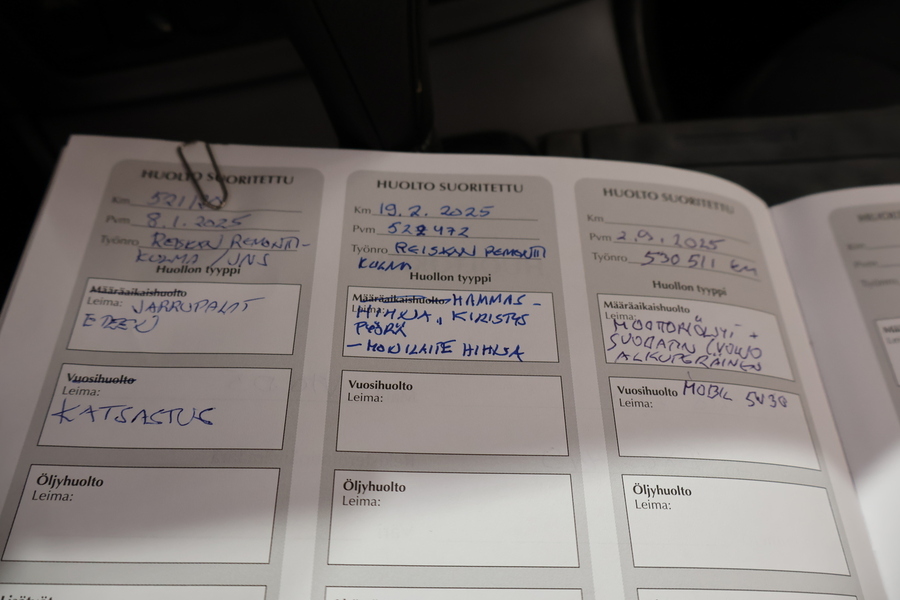 HUOLTO SUORITETTU
Km
Pvm 8.1.2025
Työnro REMONTTI-
KULMA / JNS
Huollon tyyppi
Määräaikaishuolto
Leima: JARRUPALAT
EDEEN
Vuosihuolto
Leima:
KATSASTUS
Öljyhuolto
Leima:
HUOLTO SUORITETTU
Km 19.2.2025
Pvm 522 472
Työnro REISKAN REMONTTI
KULMA
Huollon tyyppi
Määräaikaishuolto HAMMAS-
HIHNA, KIRISTYS
PYÖRÄ
- MONILAITE HIHNA
Vuosihuolto
Leima:
Öljyhuolto
Leima:
HUOLTO SUORITETTU
Km
Pvm 2.9.2025
Työnro 530511 km
Huollon tyyppi
Määräaikaishuolto
Leima:
MOOTTORIÖLJYT +
SUODATIN (VOLVO
ALKUPERÄINEN
Vuosihuolto MOBIL 5W30
Leima:
Öljyhuolto
Leima: